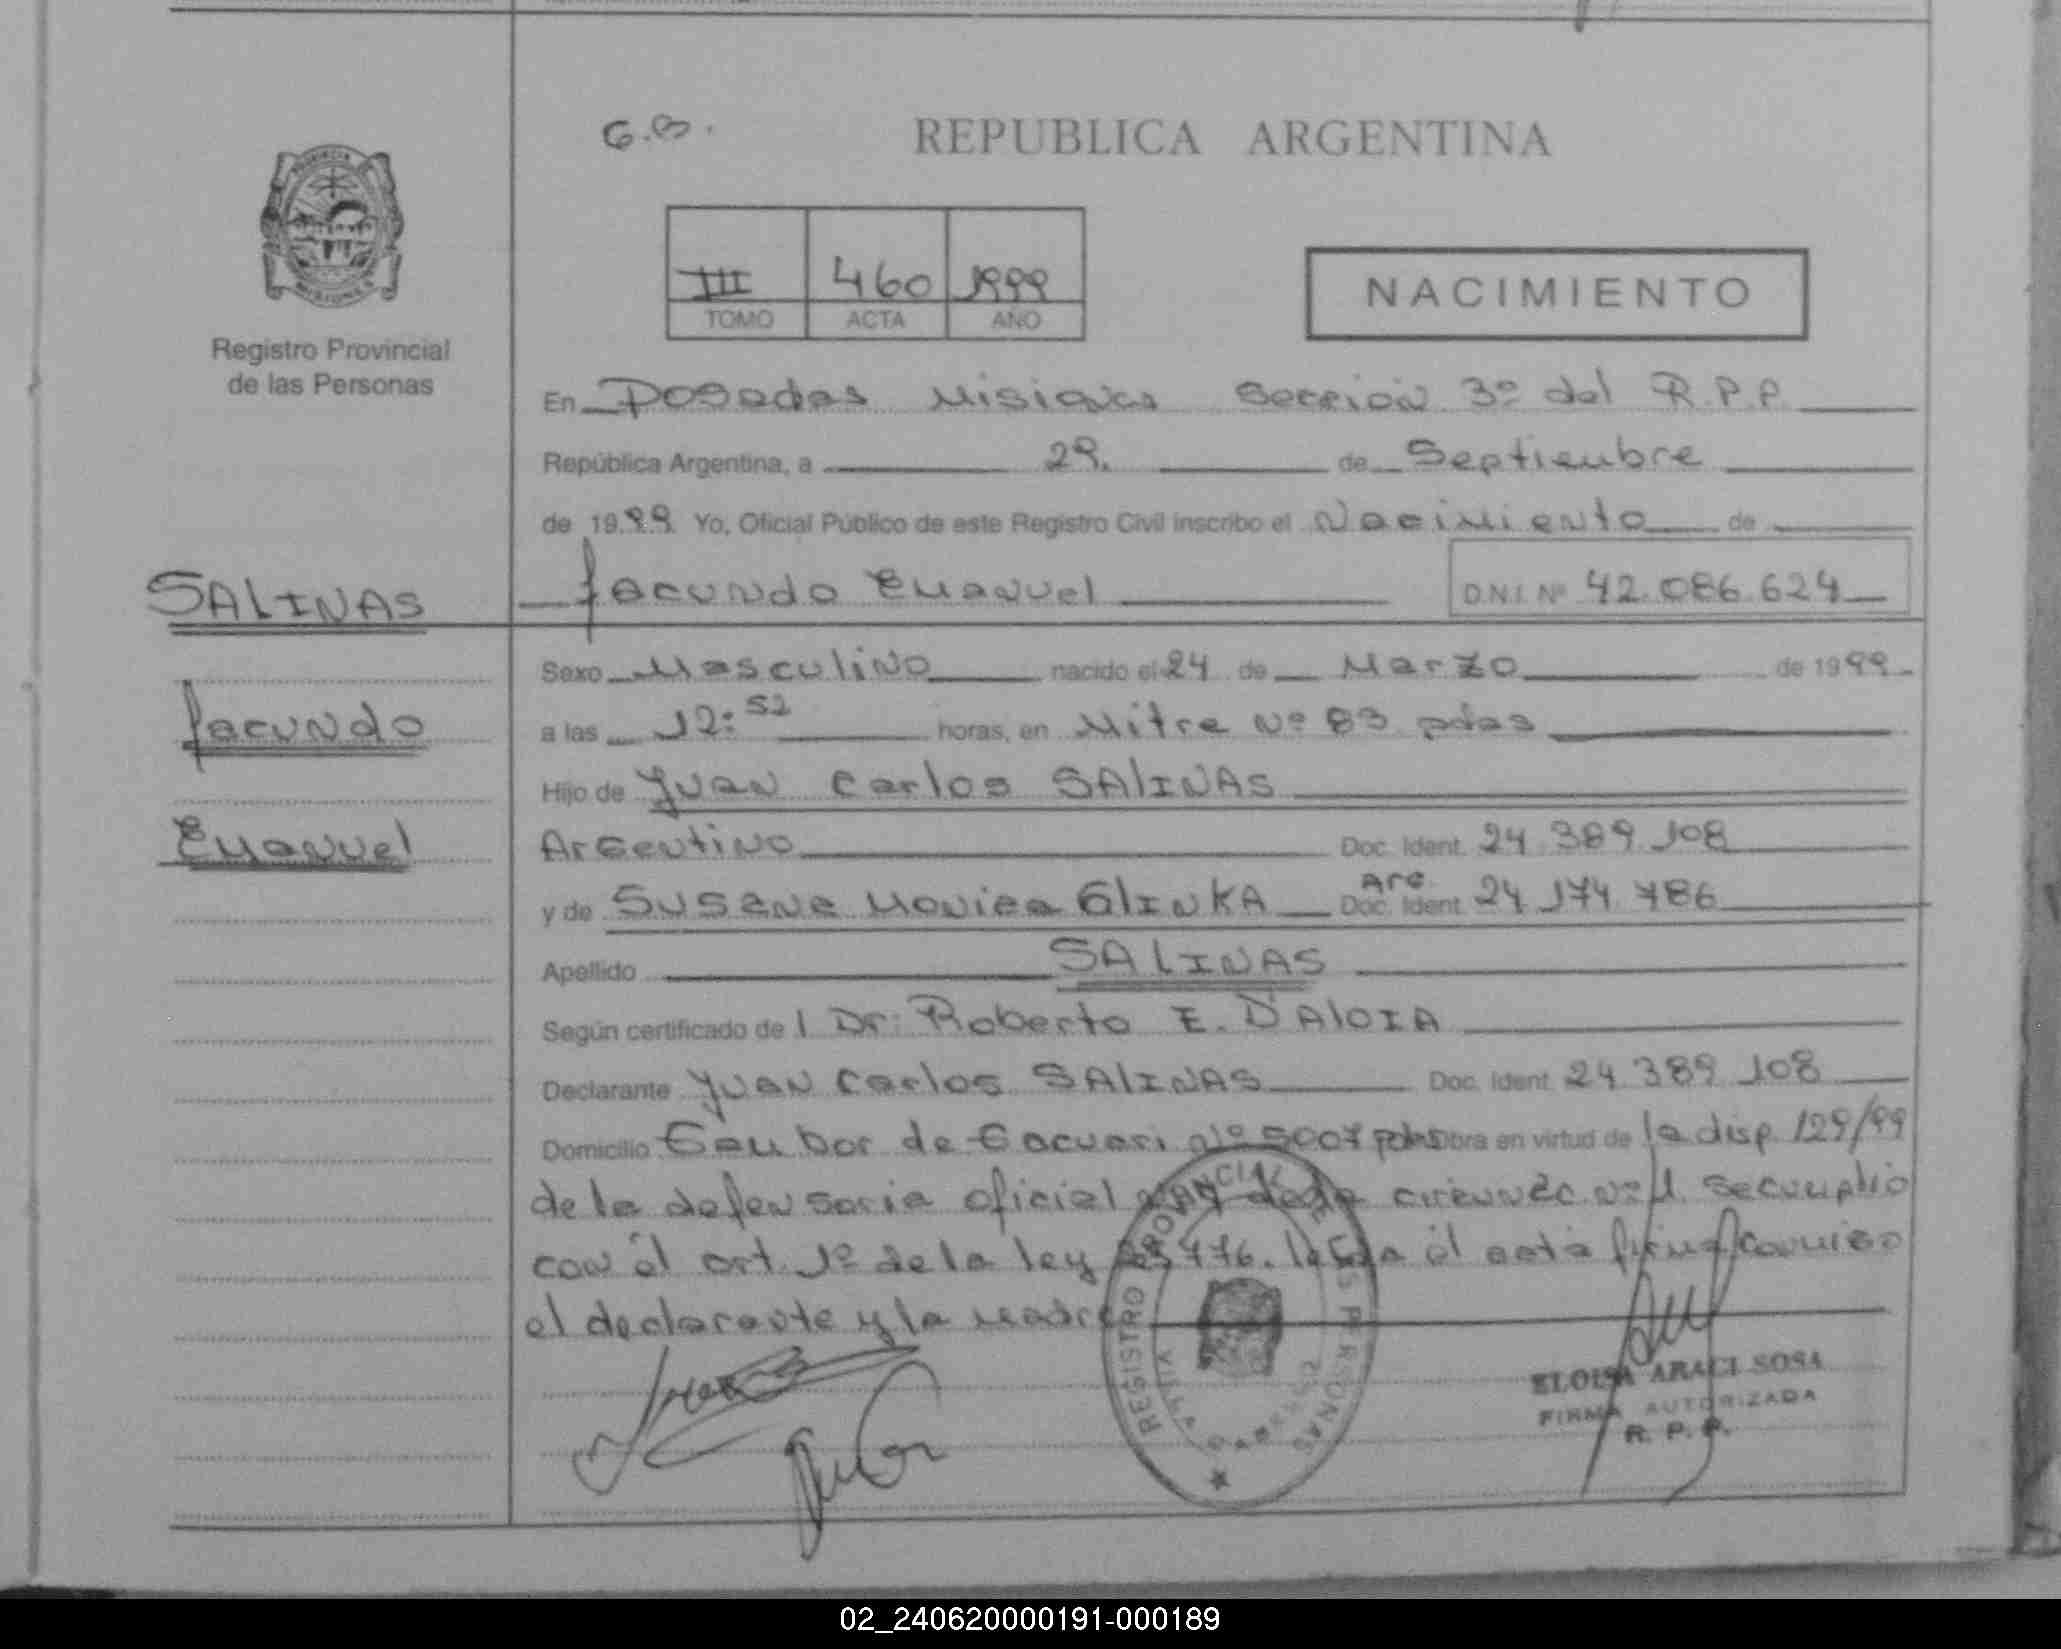 G.B.
REPUBLICA ARGENTINA
PROVINCIA
MISIONES
III 460 1999
TOMO ACTA AÑO
NACIMIENTO
Registro Provincial
de las Personas
En Posadas Misiones Sección 3º del R.P.P.
República Argentina, a 29. de Septiembre
de 1999 Yo, Oficial Público de este Registro Civil inscribo el Nacimiento de
SALINAS
facundo Emanuel D.N.I. Nº 42.086.624
Sexo Masculino nacido el 24 de Marzo de 1999
facundo
a las 12:52 horas, en Mitre Nº 83 pdas
Hijo de Juan Carlos SALINAS
Emanuel
Argentino Doc. Ident. 24.389.108
y de Susana Monica GLINKA Arg. Doc. Ident. 24.174.786
Apellido SALINAS
Según certificado de l Dr: Roberto E. D'ALOIA
Declarante Juan Carlos SALINAS Doc. Ident. 24.389.108
Domicilio Bor de Nº 5007 pdas Obra en virtud de la disp. 129/99
de la defensoria oficial Nº 1. se cumplio
con el art. 1º de la ley 476. el acta firma conmigo
el declarante y la madre
REGISTRO PROVINCIAL DE LAS PERSONAS
VILLA CABELLO
ELOISA ARACI SOSA
FIRMA AUTORIZADA
R. P. P.
02_240620000191-000189